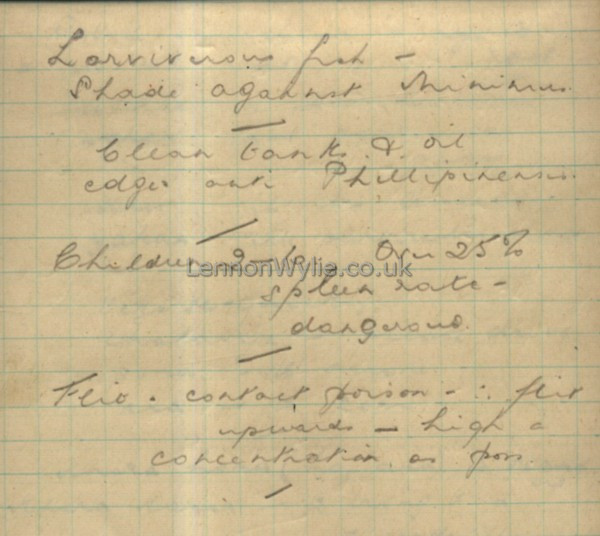 Larviverous fish -
Shade against Minimus.
Clean tanks & oil
edges anti Phillipinensis.
Children 2-10 Over 25%
LennonWylie.co.uk
spleen rate -
dangerous.
contact poison - ∴ flit
upwards - high a
concentration as poss.